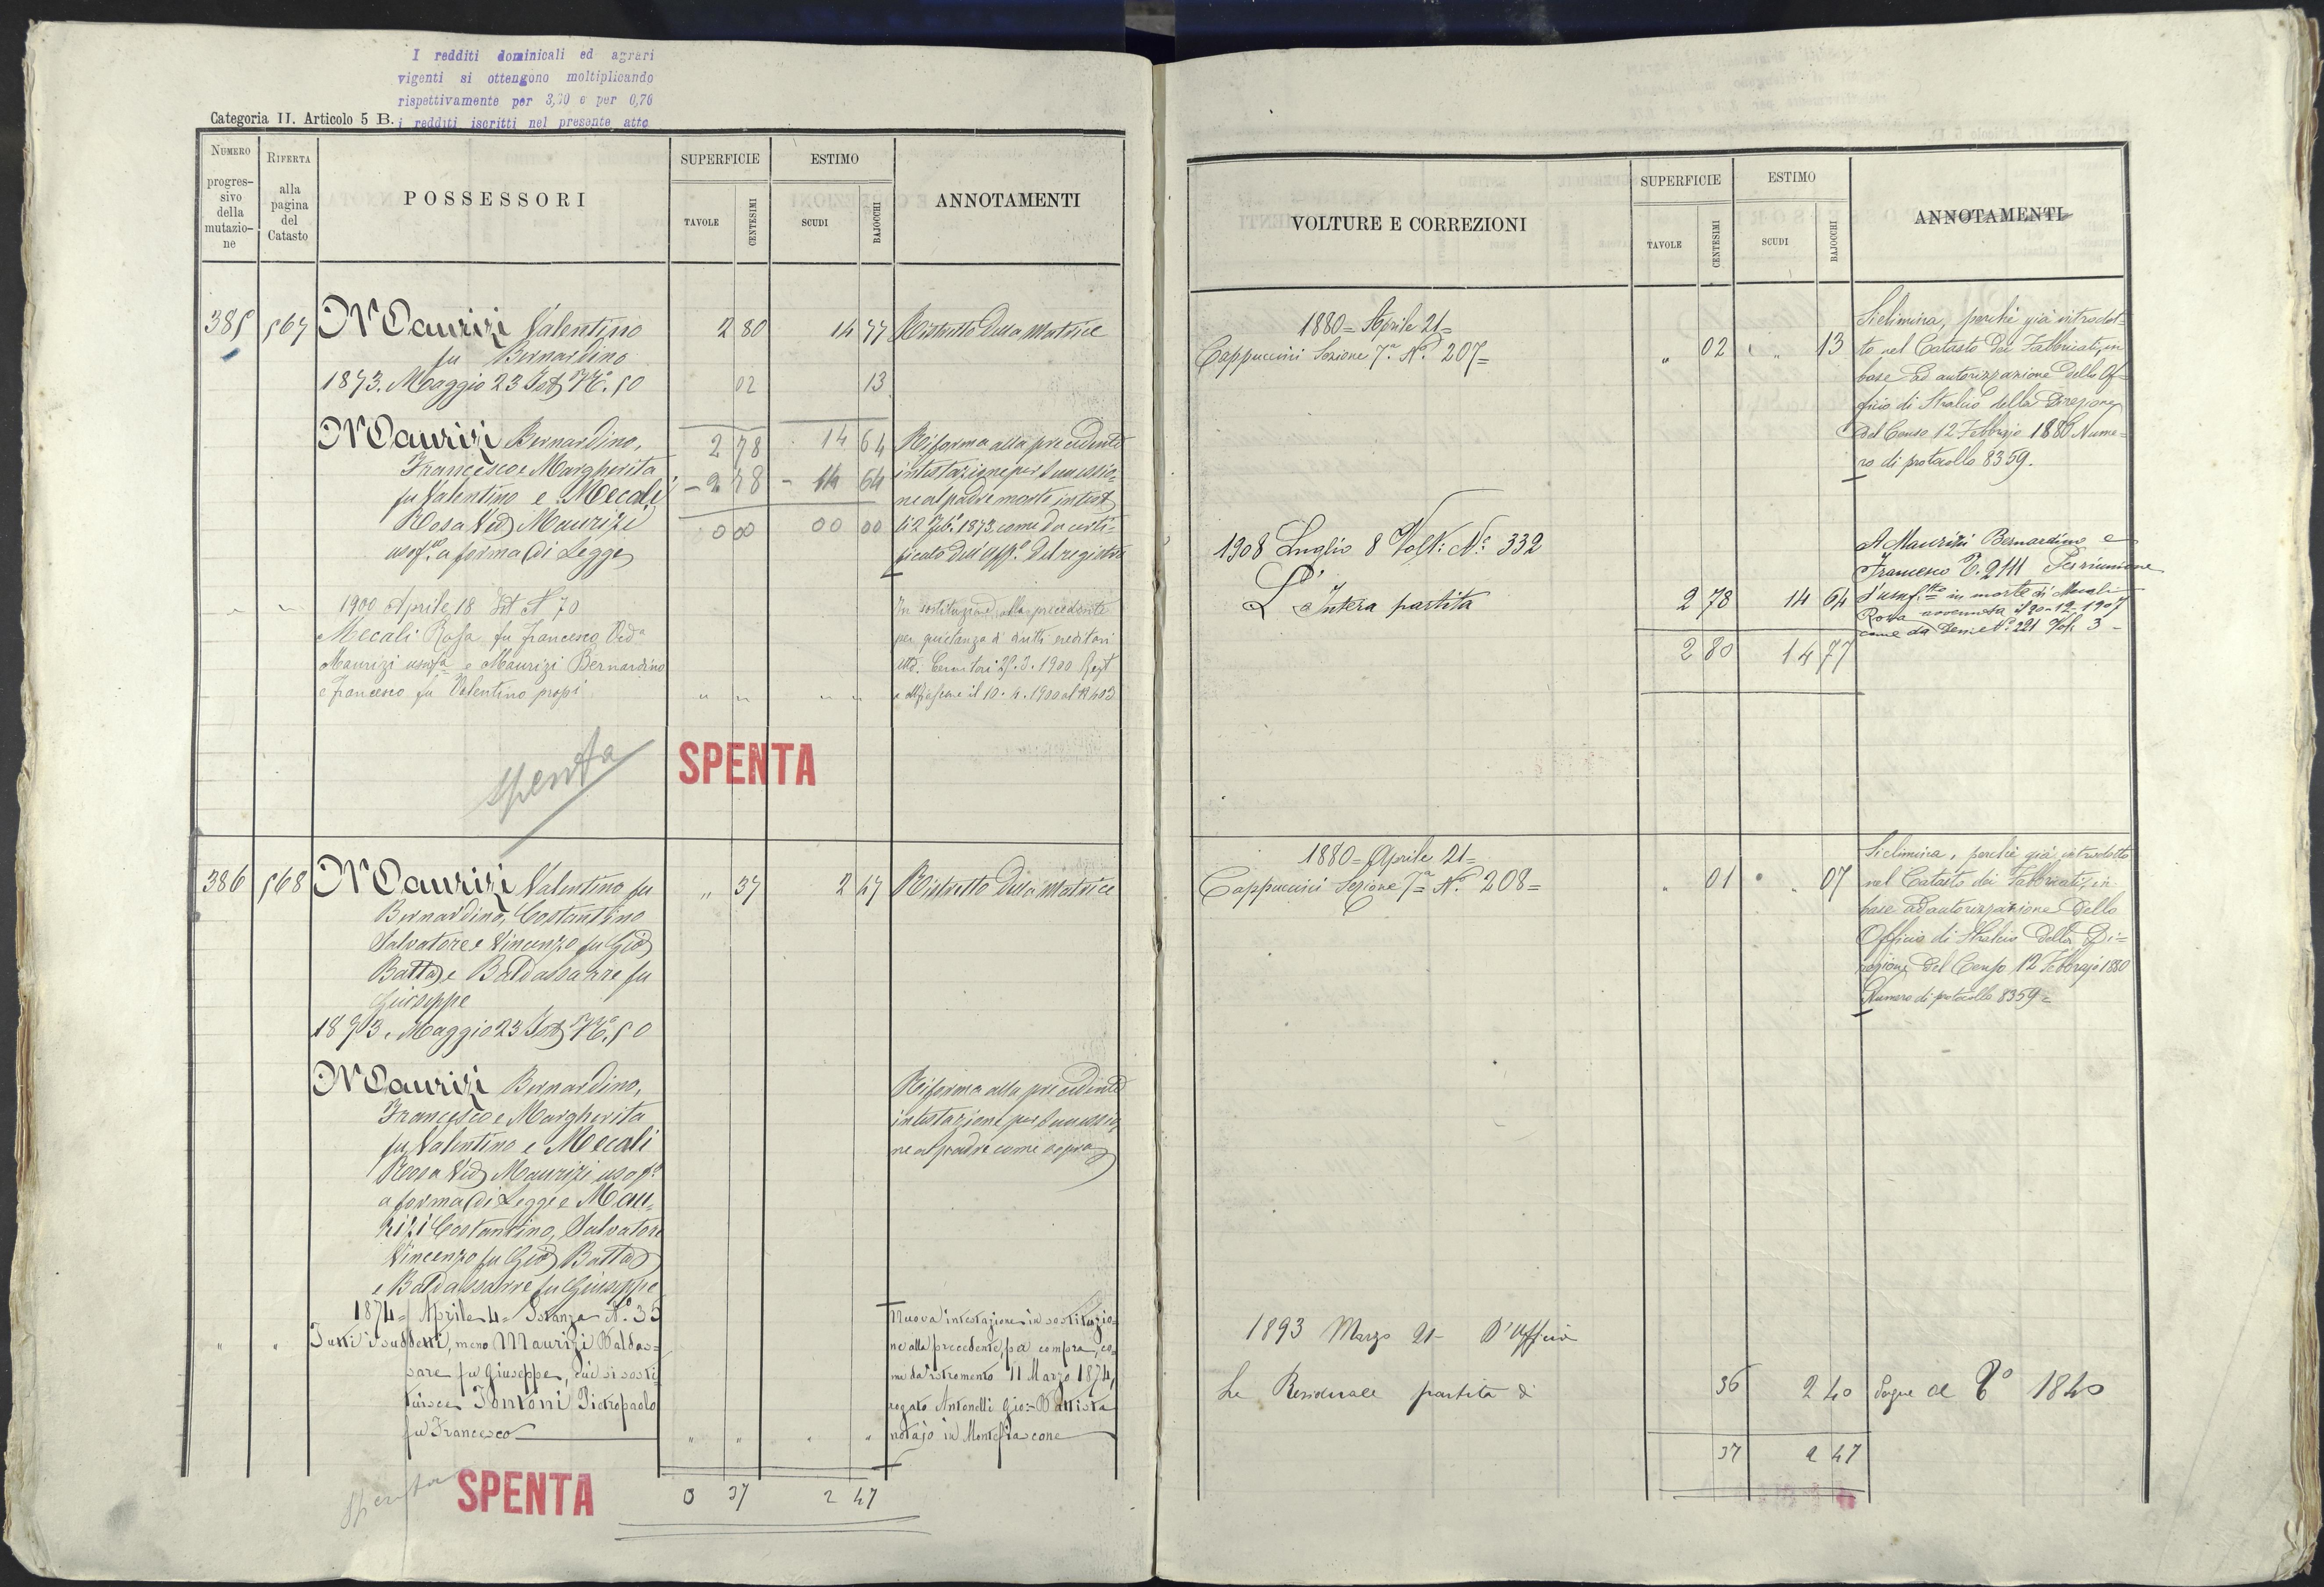 I redditi dominicali ed agrari
vigenti si ottengono moltiplicando
rispettivamente per 3,70 e per 0,76
i redditi iscritti nel presente atto
Categoria II. Articolo 5 B.
NUMERO progres-sivo della mutazio-ne
RIFERTA alla pagina del Catasto
POSSESSORI
SUPERFICIE
TAVOLE
CENTESIMI
ESTIMO
SCUDI
BAJOCCHI
ANNOTAMENTI
385 567 Maurizi Valentino 2 80 14 77 Ristretto della Matrice
fu Bernardino
1873. Maggio 23 Ist. N.° 50 02 13
Maurizi Bernardino, 2 78 14 64 Riforma alla precedente
Francesco e Margherita intestazione per successio-
fu Valentino e Mecali - 2 78 - 14 64 ne al padre morto intest.
Rosa Ved. Maurizi 0 00 00 00 li 2 Feb. 1873 come da certi-
usuf. a forma di Legge ficato dell'Uff. del registro
" " 1900 Aprile 18 Ist N 70 In sostituzione alla precedente
Mecali Rosa fu Francesco Ved.a per quietanza di diritti ereditari
Maurizi usuf.a e Maurizi Bernardino 25.3.1900 Regt
e Francesco fu Valentino propi " " " " a Mfiascone il 10.4.1900 al N 403
spenta
SPENTA
386 568 Maurizi Valentino fu " 37 2 47 Ristretto della Matrice
Bernardino, Costantino
Salvatore e Vincenzo fu Gio
Batta e Baldassarre fu
Giuseppe
1873. Maggio 23 Ist. N.° 50
Maurizi Bernardino, Riforma alla precedente
Francesco e Margherita intestazione per successio
fu Valentino e Mecali ne al padre come sopra
Rosa Ved. Maurizi usuf.
a forma di Legge e Mau-
rizi Costantino, Salvatore
Vincenzo fu Gio Batta
e Baldassarre fu Giuseppe
1874= Aprile 4= Istanza N.° 35 Nuova intestazione in sostituzio-
" " Tutti i suddetti, meno Maurizi Baldas= ne alla precedente, per compra, co-
sare fu Giuseppe, cui si sosti- me da istromento 11 Marzo 1874,
tuisce Tontoni Pietropaolo rogato Antonelli Gio:-Battista
fu Francesco " " " " notajo in Montefiascone
spenta
SPENTA
0 37 2 47
VOLTURE E CORREZIONI
SUPERFICIE
TAVOLE
CENTESIMI
ESTIMO
SCUDI
BAJOCCHI
ANNOTAMENTI
1880= Aprile 21= Si elimina, perchè già introdot=
Cappuccini Sezione 7.a N.° 207= " 02 " 13 to nel Catasto dei Fabbricati, in
base ad autorizzazione dello Of=
ficio di Stralcio della Direzione
del Censo 12 Febbrajo 1880 Nume=
ro di protocollo 8359.
1908 Luglio 8 Volt: N.° 332 A Maurizi Bernardino e
Francesco P. 2111 Per riunione
L'Intera partita 2 78 14 64 d'usuf.tto in morte di Mecali
Rosa avvenuta il 20-12-1907
come da Den: N.° 221 Vol. 3 -
2 80 14 77
1880= Aprile 21= Si elimina, perchè già introdotto
Cappuccini Sezione 7.a N.° 208= " 01 " 07 nel Catasto dei Fabbricati, in
base ad autorizzazione dello
Officio di Stralcio della Di=
rezione del Censo 12 Febbrajo 1880
Numero di protocollo 8359=
1893 Marzo 21- D'Ufficio
La Residuale partita di 36 2 40 Segue al 1840
37 2 47